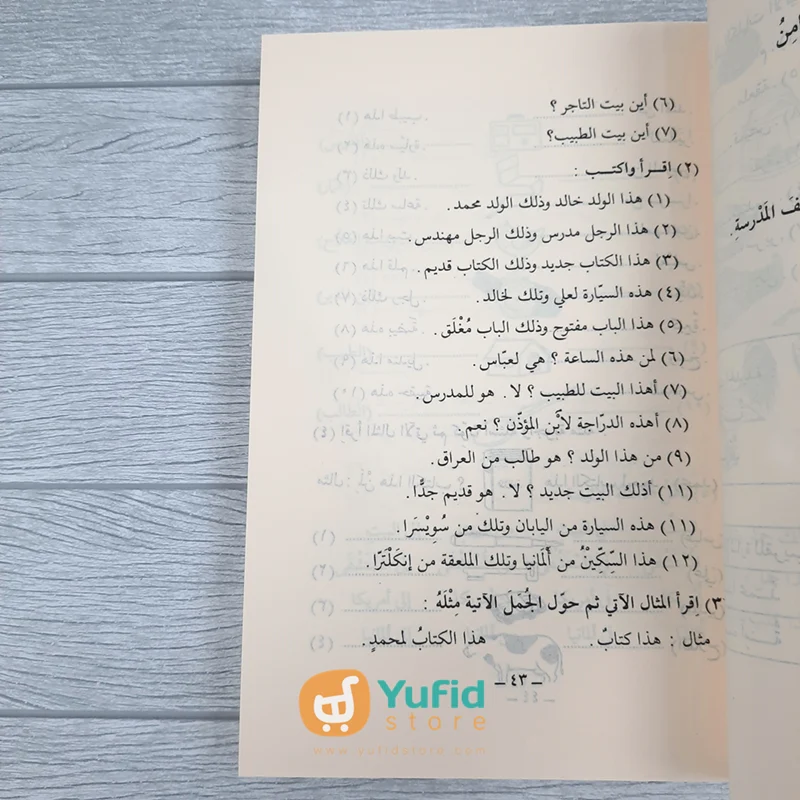 (٦) أين بيت التاجر ؟
(٧) أين بيت الطبيب؟
(٢) اِقـرأ واكتـب :
(١) هذا الولد خالد وذلك الولد محمد.
(٢) هذا الرجل مدرس وذلك الرجل مهندس.
(٣) هذا الكتاب جديد وذلك الكتاب قديم.
(٤) هذه السيّارة لعلي وتلك لخالد.
(٥) هذا الباب مفتوح وذلك الباب مُغْلَق.
(٦) لمن هذه الساعة ؟ هي لعبّاس.
(٧) أهذا البيت للطبيب ؟ لا. هو للمدرس.
(٨) أهذه الدرّاجة لاَبْن المؤذّن ؟ نعم.
(٩) من هذا الولد ؟ هو طالب من العراق.
(١١) أذلك البيت جديد ؟ لا. هو قديم جدًّا.
(١١) هذه السيارة من اليابان وتلك من سُوِيْسَرا.
(١٢) هذا السِّكِّينُ من أَلمَانيا وتلك الملعقة من إنكَلْتَرّا.
(٣) اِقرأ المثال الآتي ثم حوّل الجُمَلَ الآتية مِثْلَهُ :
مثال : هذا كتابٌ. هذا الكتابُ لمحمدٍ.
– ٤٣ –
Yufid
store
www.yufidstore.com
المَدْرسةِ.